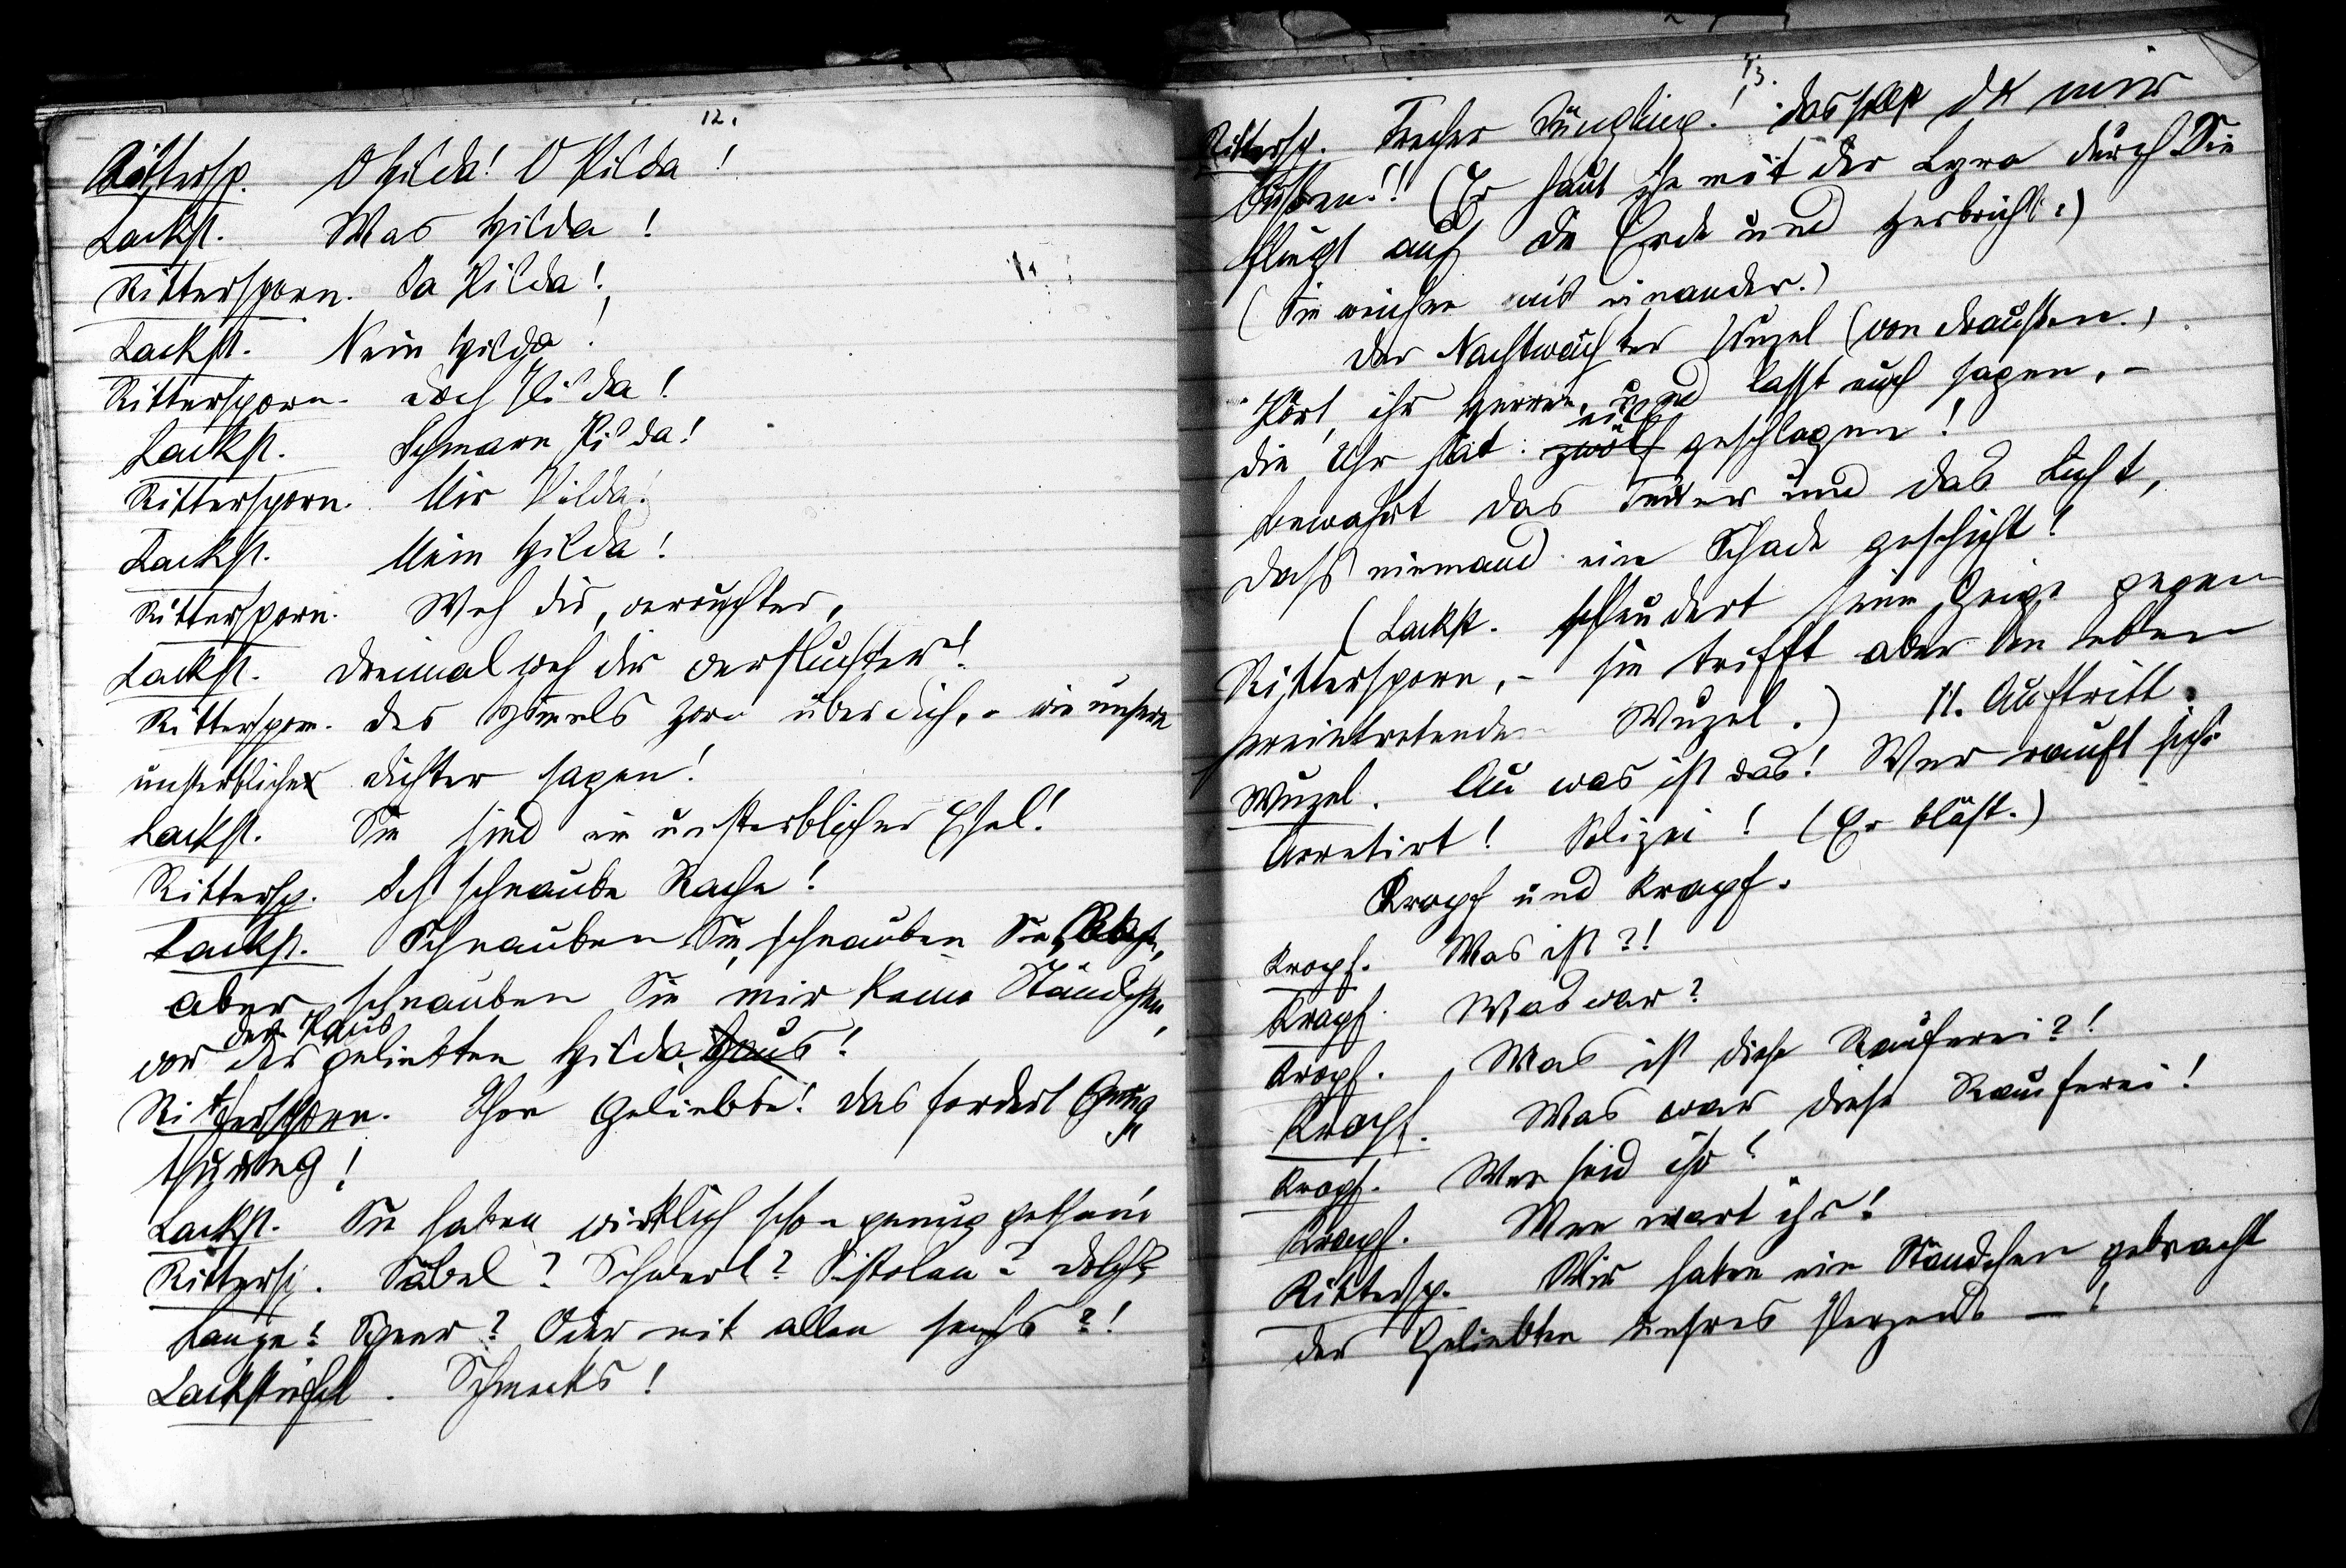 12.
Rittersp. O Hilda! O Hilda!
Lackst. Was Hilda!
Rittersporn. Ja Hilda!
Lackst. Nein Hilda!
Rittersporn. Doch Hilda!
Lackst. Schmarn Hilda!
Rittersporn. Mir Hilda!
Lackst. Mein Hilda!
Rittersporn. Weh dir, verruchter,
Lackst. Dreimal weh dir verfluchter!
Rittersporn. Des Himmels Zorn über dich, - wie unsere
unsterblichen Dichter sagen!
Lackst. Sie sind ein unsterblicher Esel!
Rittersp. Ich schnaube Rache!
Lackst. Schnauben Sie, schnauben Sie
aber schnauben Sie mir keine Ständchen,
des Haus
vor der geliebten Hilda Haus!
Rittersporn. Ihre Geliebte! Das fordert Genug-
thuung!
Lackst. Sie haben wirklich schon genug gethan!
Rittersp. Säbel? Schwert? Pistolen? Dolch?
Lanze? Speer? Oder mit allen sechs?!
Lackstiefel. Schmecks!
13.
Rittersp. Frecher Jüngling! das sollst du mir
büssen!! (Er haut ihn mit der Lyra durch Die
fliegt auf die Erde und zerbricht.)
(Sie weichen aus einander.)
Der Nachtwächter Wuzel (von draussen.)
Hört, ihr Herren, und lasst euch sagen, -
eilf
die Uhr hat zwölf geschlagen!
bewahrt das Feuer und das Licht,
dass niemand ein Schade geschieht!
(Lackst. schleudert seine Geige gegen
Rittersporn, - sie trifft aber den eben
hereintretenden Wuzel.) 11. Auftritt.
Wuzel. Au was ist das! Wer rauft sich?
Arretirt! Polizei! (Er bläst.)
Kropf und Krapf.
Kropf. Was ist?!
Krapf. Was war?
Kropf. Was ist diese Rauferei?!
Krapf. Was war diese Rauferei!
Kropf. Wer seid ihr?
Krapf. Wer wart ihr!
Rittersp. Wir haben ein Ständchen gebracht
der Geliebten unsres Herzens — !